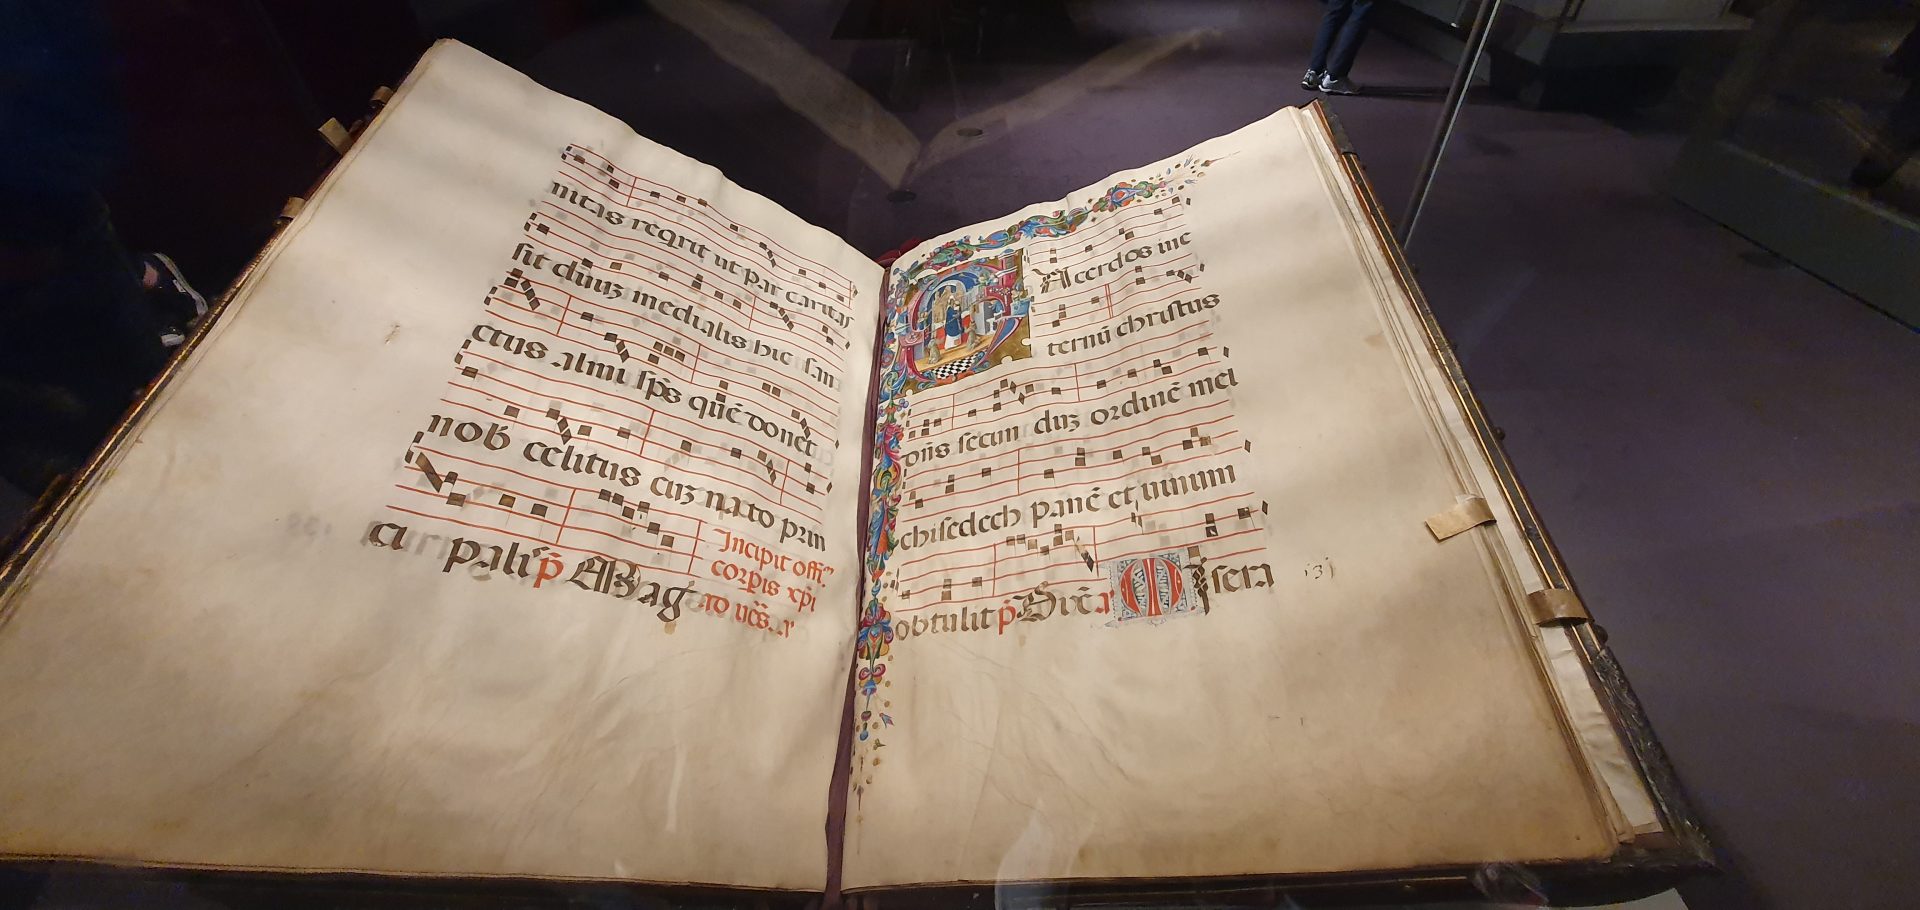 nitas reqrit ut par caritas
sit duuz medialis hic sanc
ctus almi sps quē donet
nob celitus cuz nato prin
cipali p Mag
Incipit offi
corpis xpi
ad
Sacerdos in e
ternū christus
dñs scdm duz ordinē mel
chisedech panē et uinum
obtulit p Dix